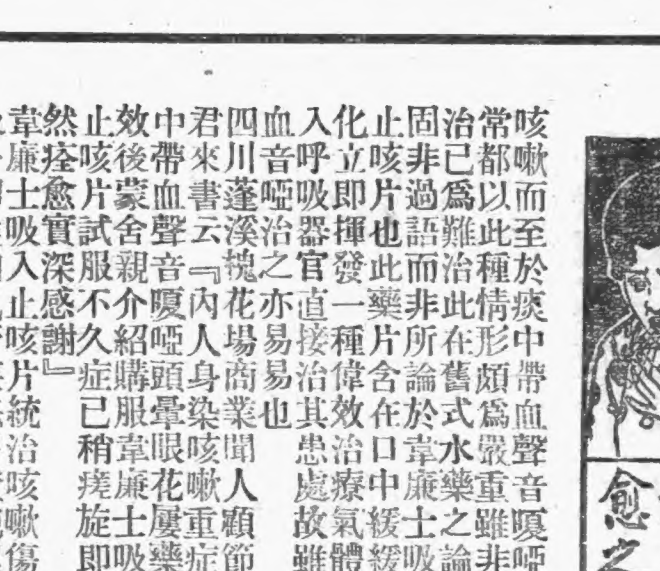 愈之
咳嗽而至於痰中帶血聲音嗄啞
常都以此種情形頗爲嚴重雖非
治已爲難治此在舊式水藥之論
固非過語而非所論於韋廉士吸
止咳片也此藥片含在口中緩緩
化立即揮發一種偉效治療氣體
入呼吸器官直接治其患處故雖
血音啞治之亦易易也
四川蓬溪槐花場商業聞人顧節
君來書云『內人身染咳嗽重症
中帶血聲音嗄啞頭暈眼花屢藥
效後蒙舍親介紹購服韋廉士吸
止咳片試服不久症已稍瘥旋即
然痊愈實深感謝』
韋廉士吸入止咳片統治咳嗽傷